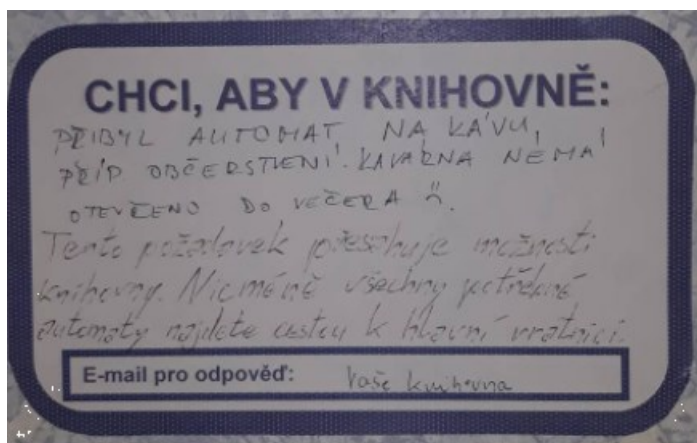 CHCI, ABY V KNIHOVNĚ:
PŘIBYL AUTOMAT NA KÁVU,
PŘÍP OBČERSTVENÍ. KAVÁRNA NEMÁ
OTEVŘENO DO VEČERA
Tento požadavek přesahuje možnosti
knihovny. Nicméně všechny potřebné
automaty najdete cestou k hlavní vrátnici.
E-mail pro odpověď: Vaše knihovna